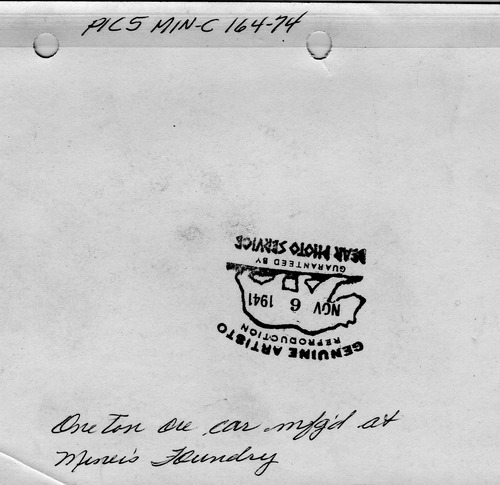 PICS MIN-C 164-74
BEAR PHOTO SERVICE
GUARANTEED BY
NOV 6 1941
REPRODUCTION
GENUINE ARTISTO
One Ton ore car mfg'd at
Miners Foundry